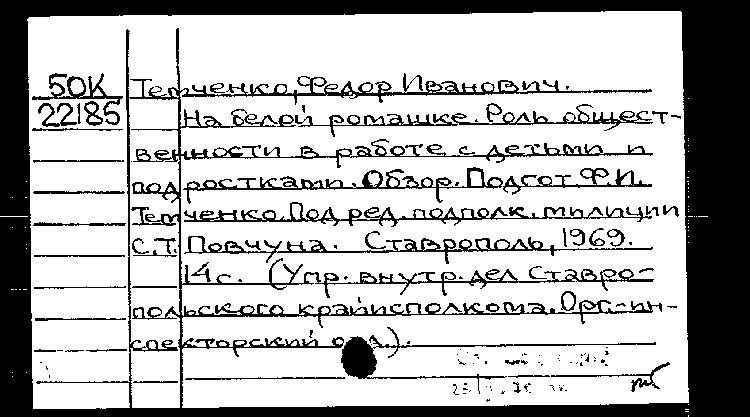 50К Тетченко, Федор Иванович.
22185 На белой ромашке. Роль общест-
венности в работе с детьми и
подростками. Обзор. Подгот. Ф.И.
Тетченко. Под ред. подполк. милиции
С.Т. Повчуна. Ставрополь, 1969.
14 с. (Упр. внутр. дел Ставро-
польского крайисполкома. Орг.-ин-
спекторский отд.).